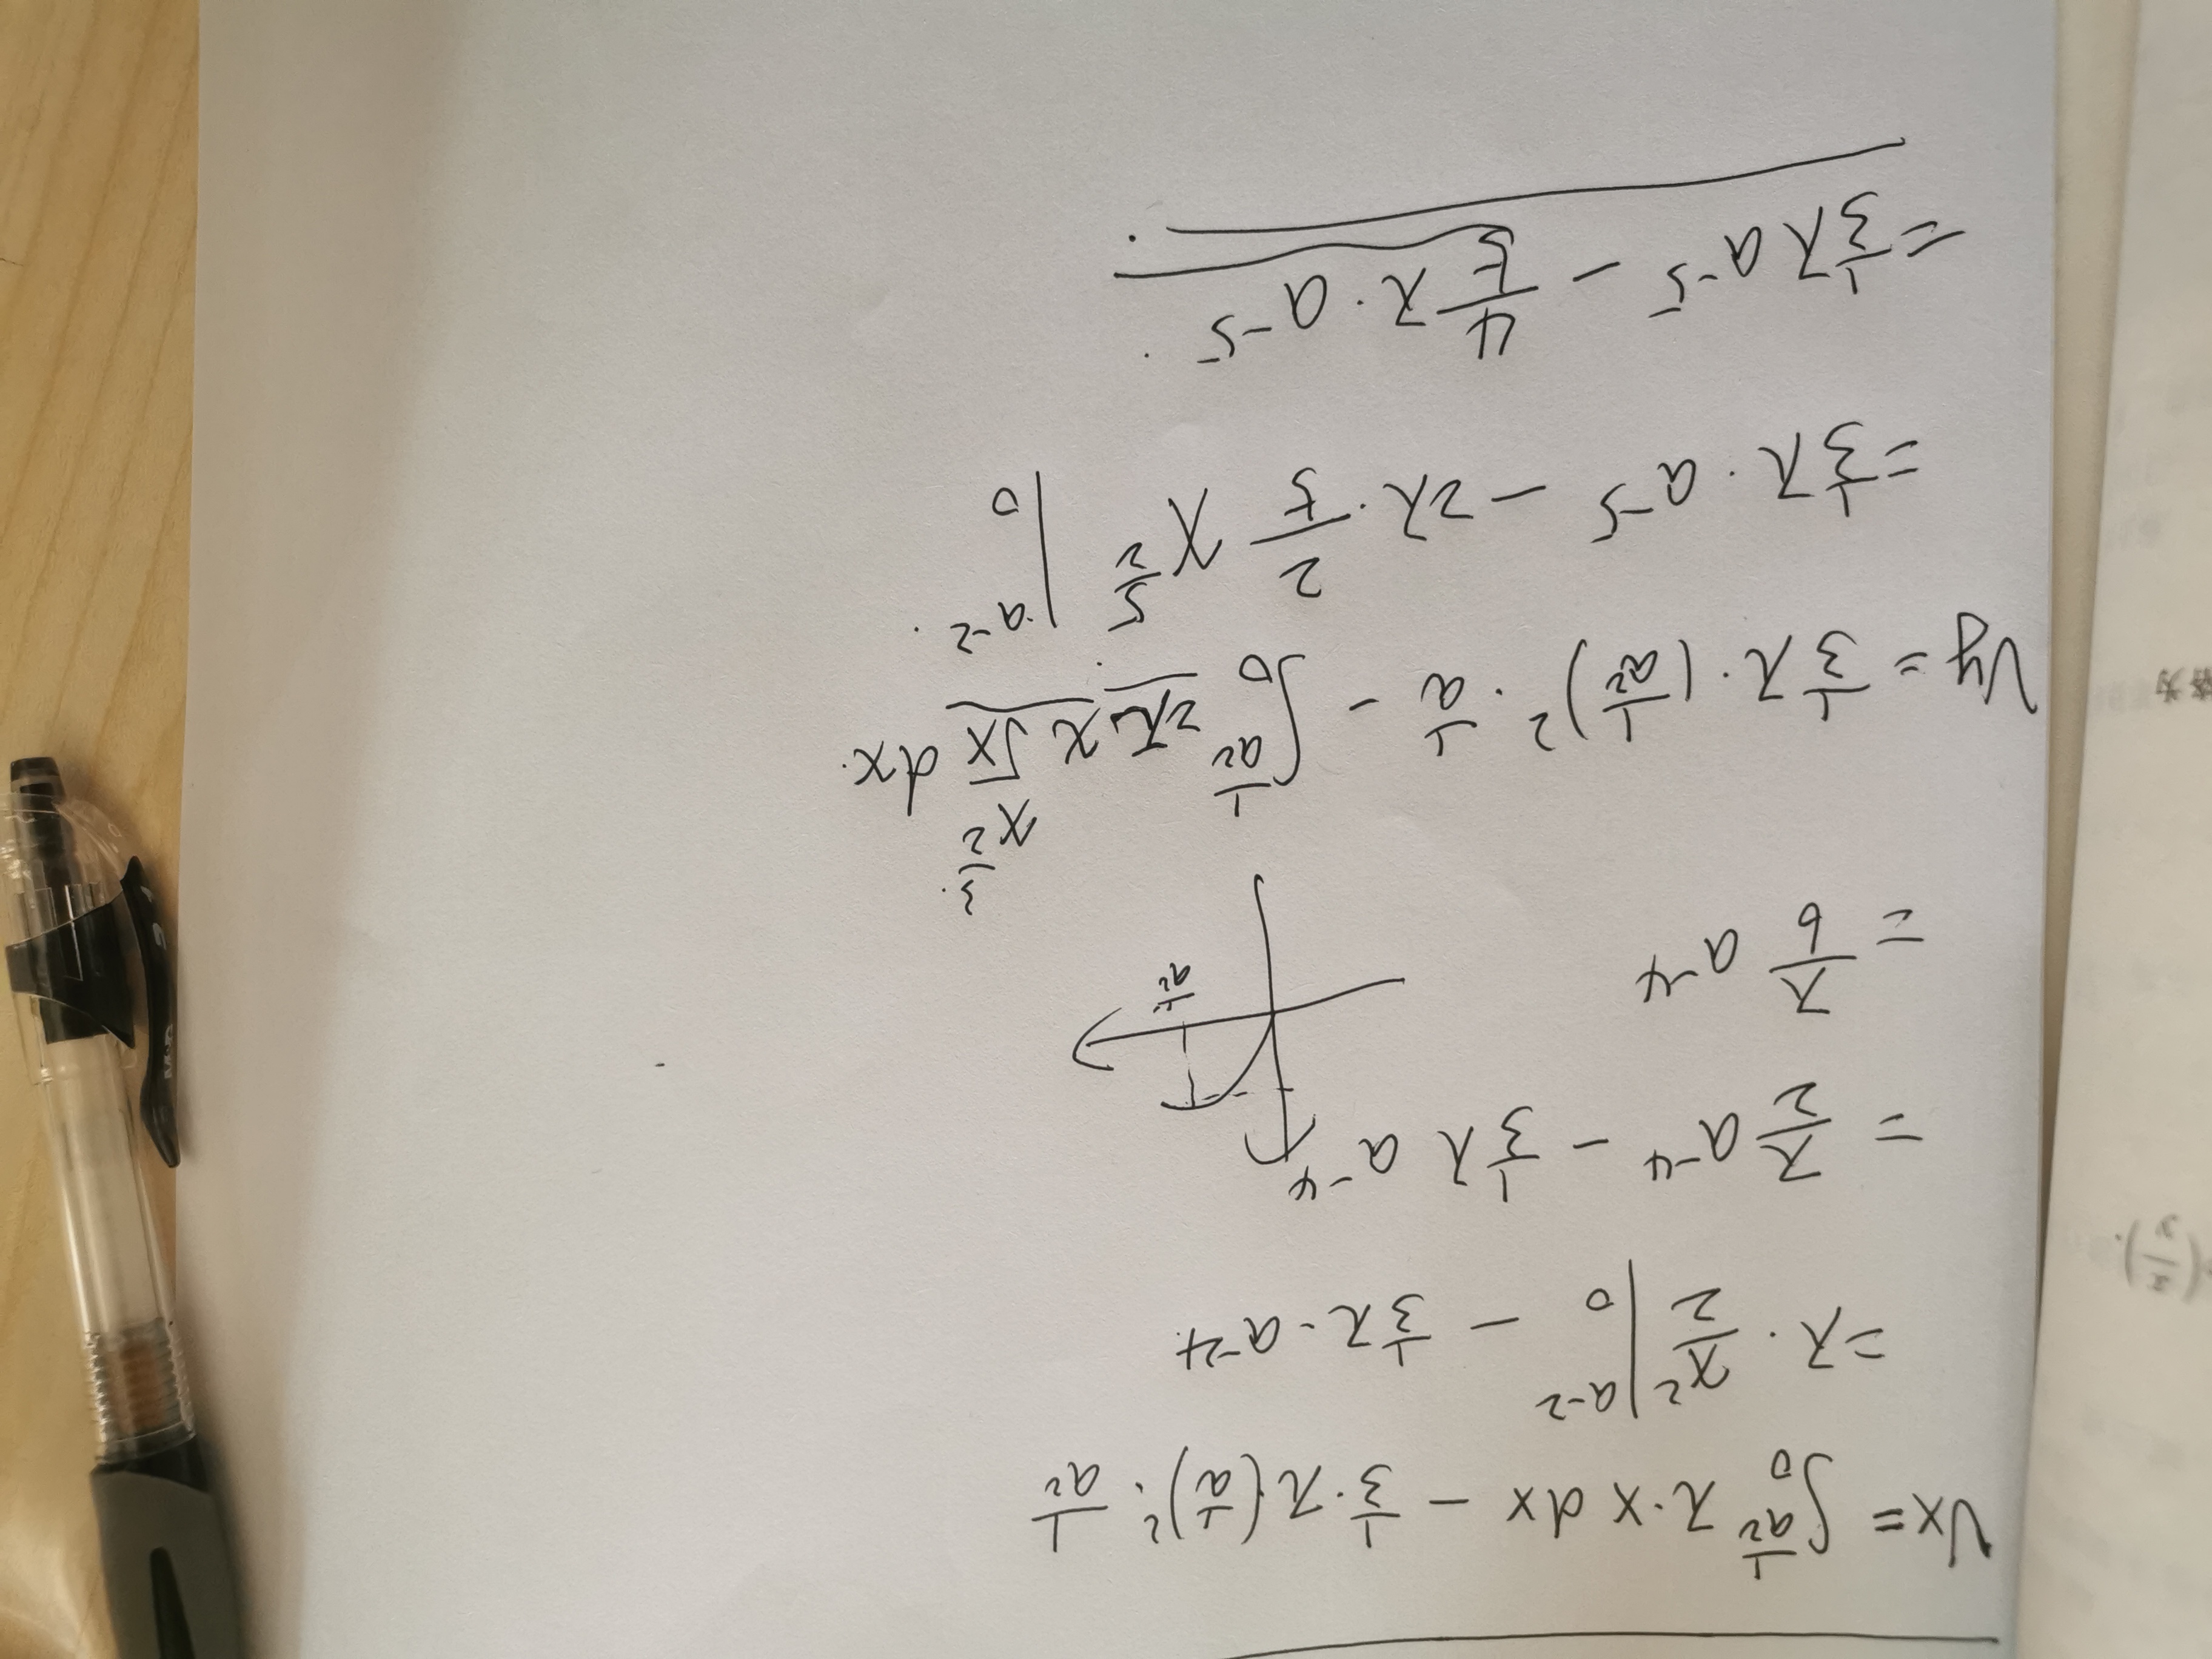 Vx = ∫₀^(1/a²) π·x dx − 1/3·π·(1/a)²·1/a²
= π· x²/2 |₀^(a⁻²) − 1/3 π·a⁻⁴
= π/2 a⁻⁴ − 1/3 π a⁻⁴
= π/6 a⁻⁴
1/a²
Vy = 1/3 π·(1/a²)²·1/a − ∫₀^(1/a²) 2π x √x dx.
x^(3/2)
= 1/3 π·a⁻⁵ − 2π· 2/5 x^(5/2) |₀^(a⁻²).
= 1/3 π a⁻⁵ − 4/5 π·a⁻⁵.